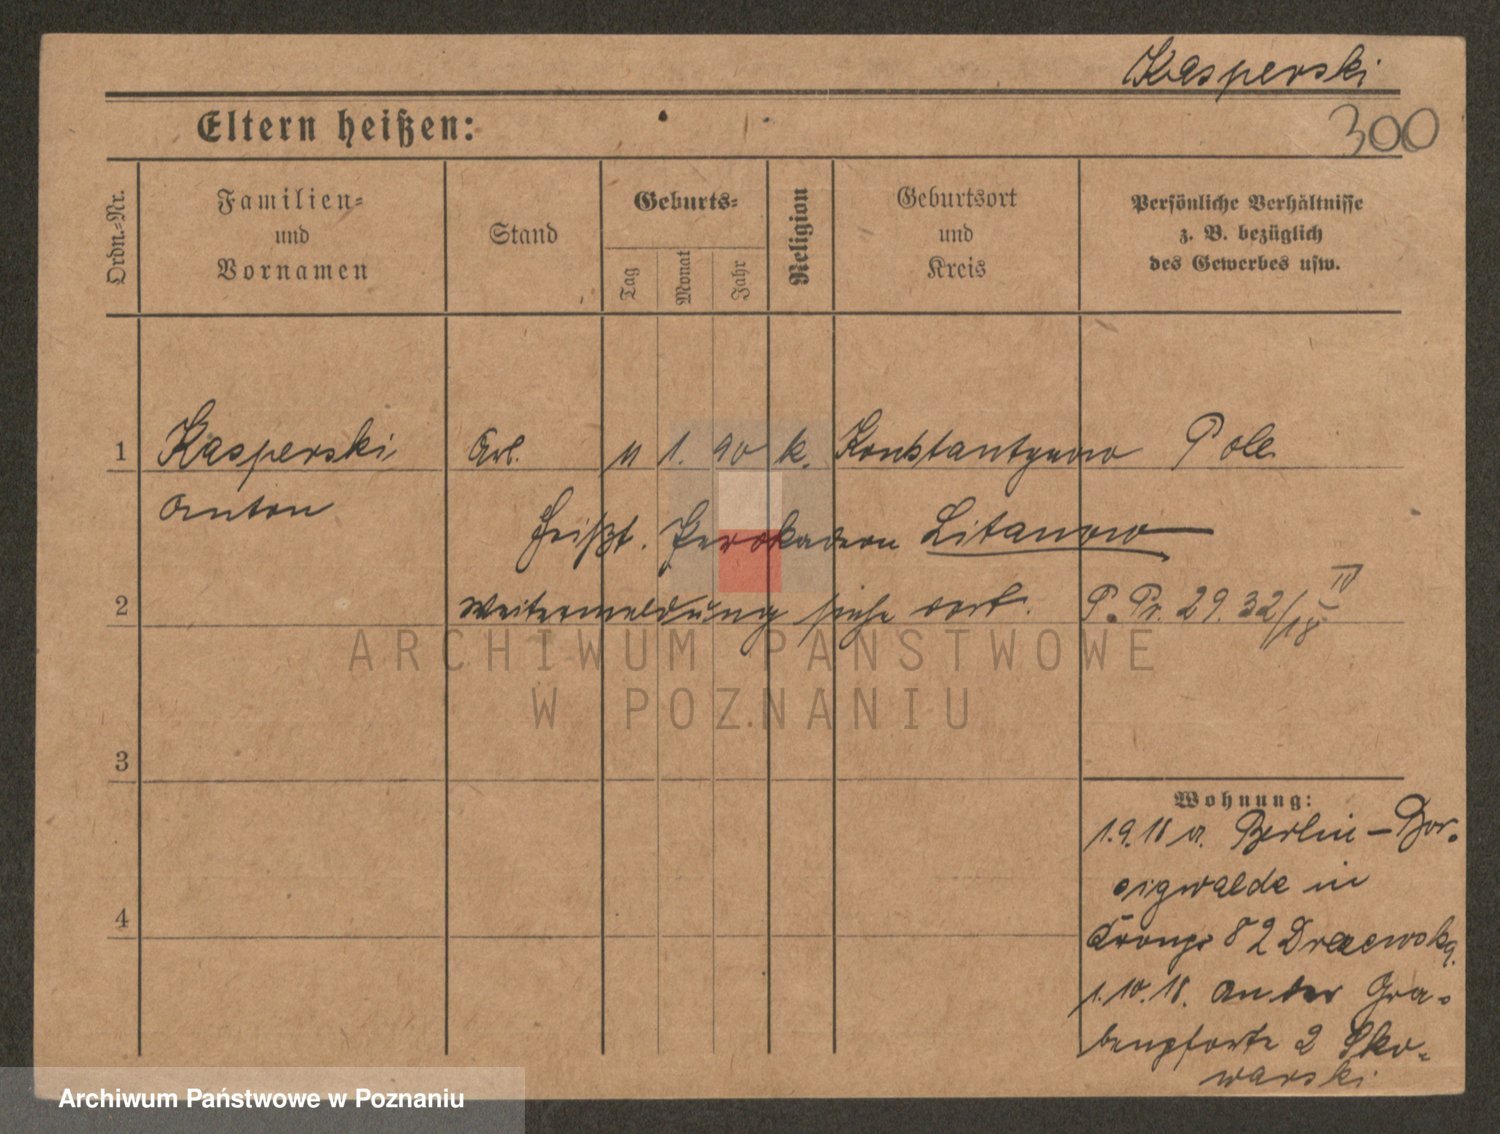 Kasperski
300
Eltern heißen:
Ordn.-Nr.
Familien-
und
Vornamen
Stand
Geburts-
Tag
Monat
Jahr
Religion
Geburtsort
und
Kreis
Persönliche Verhältnisse
z. B. bezüglich
des Gewerbes usw.
1 Kasperski Arb. 11 1. 90 k. Konstantynow Pole
Anton
heißt. Litanow
2 Weitermeldung siehe dort. P. Pr. 29. 32/18 IV
ARCHIWUM PAŃSTWOWE
W POZNANIU
3
Wohnung:
1.9.18 a. Berlin - Bor-
sigwalde in
4
82
1.10.18. An der Gra-
benpforte 2 Sko-
warski
Archiwum Państwowe w Poznaniu